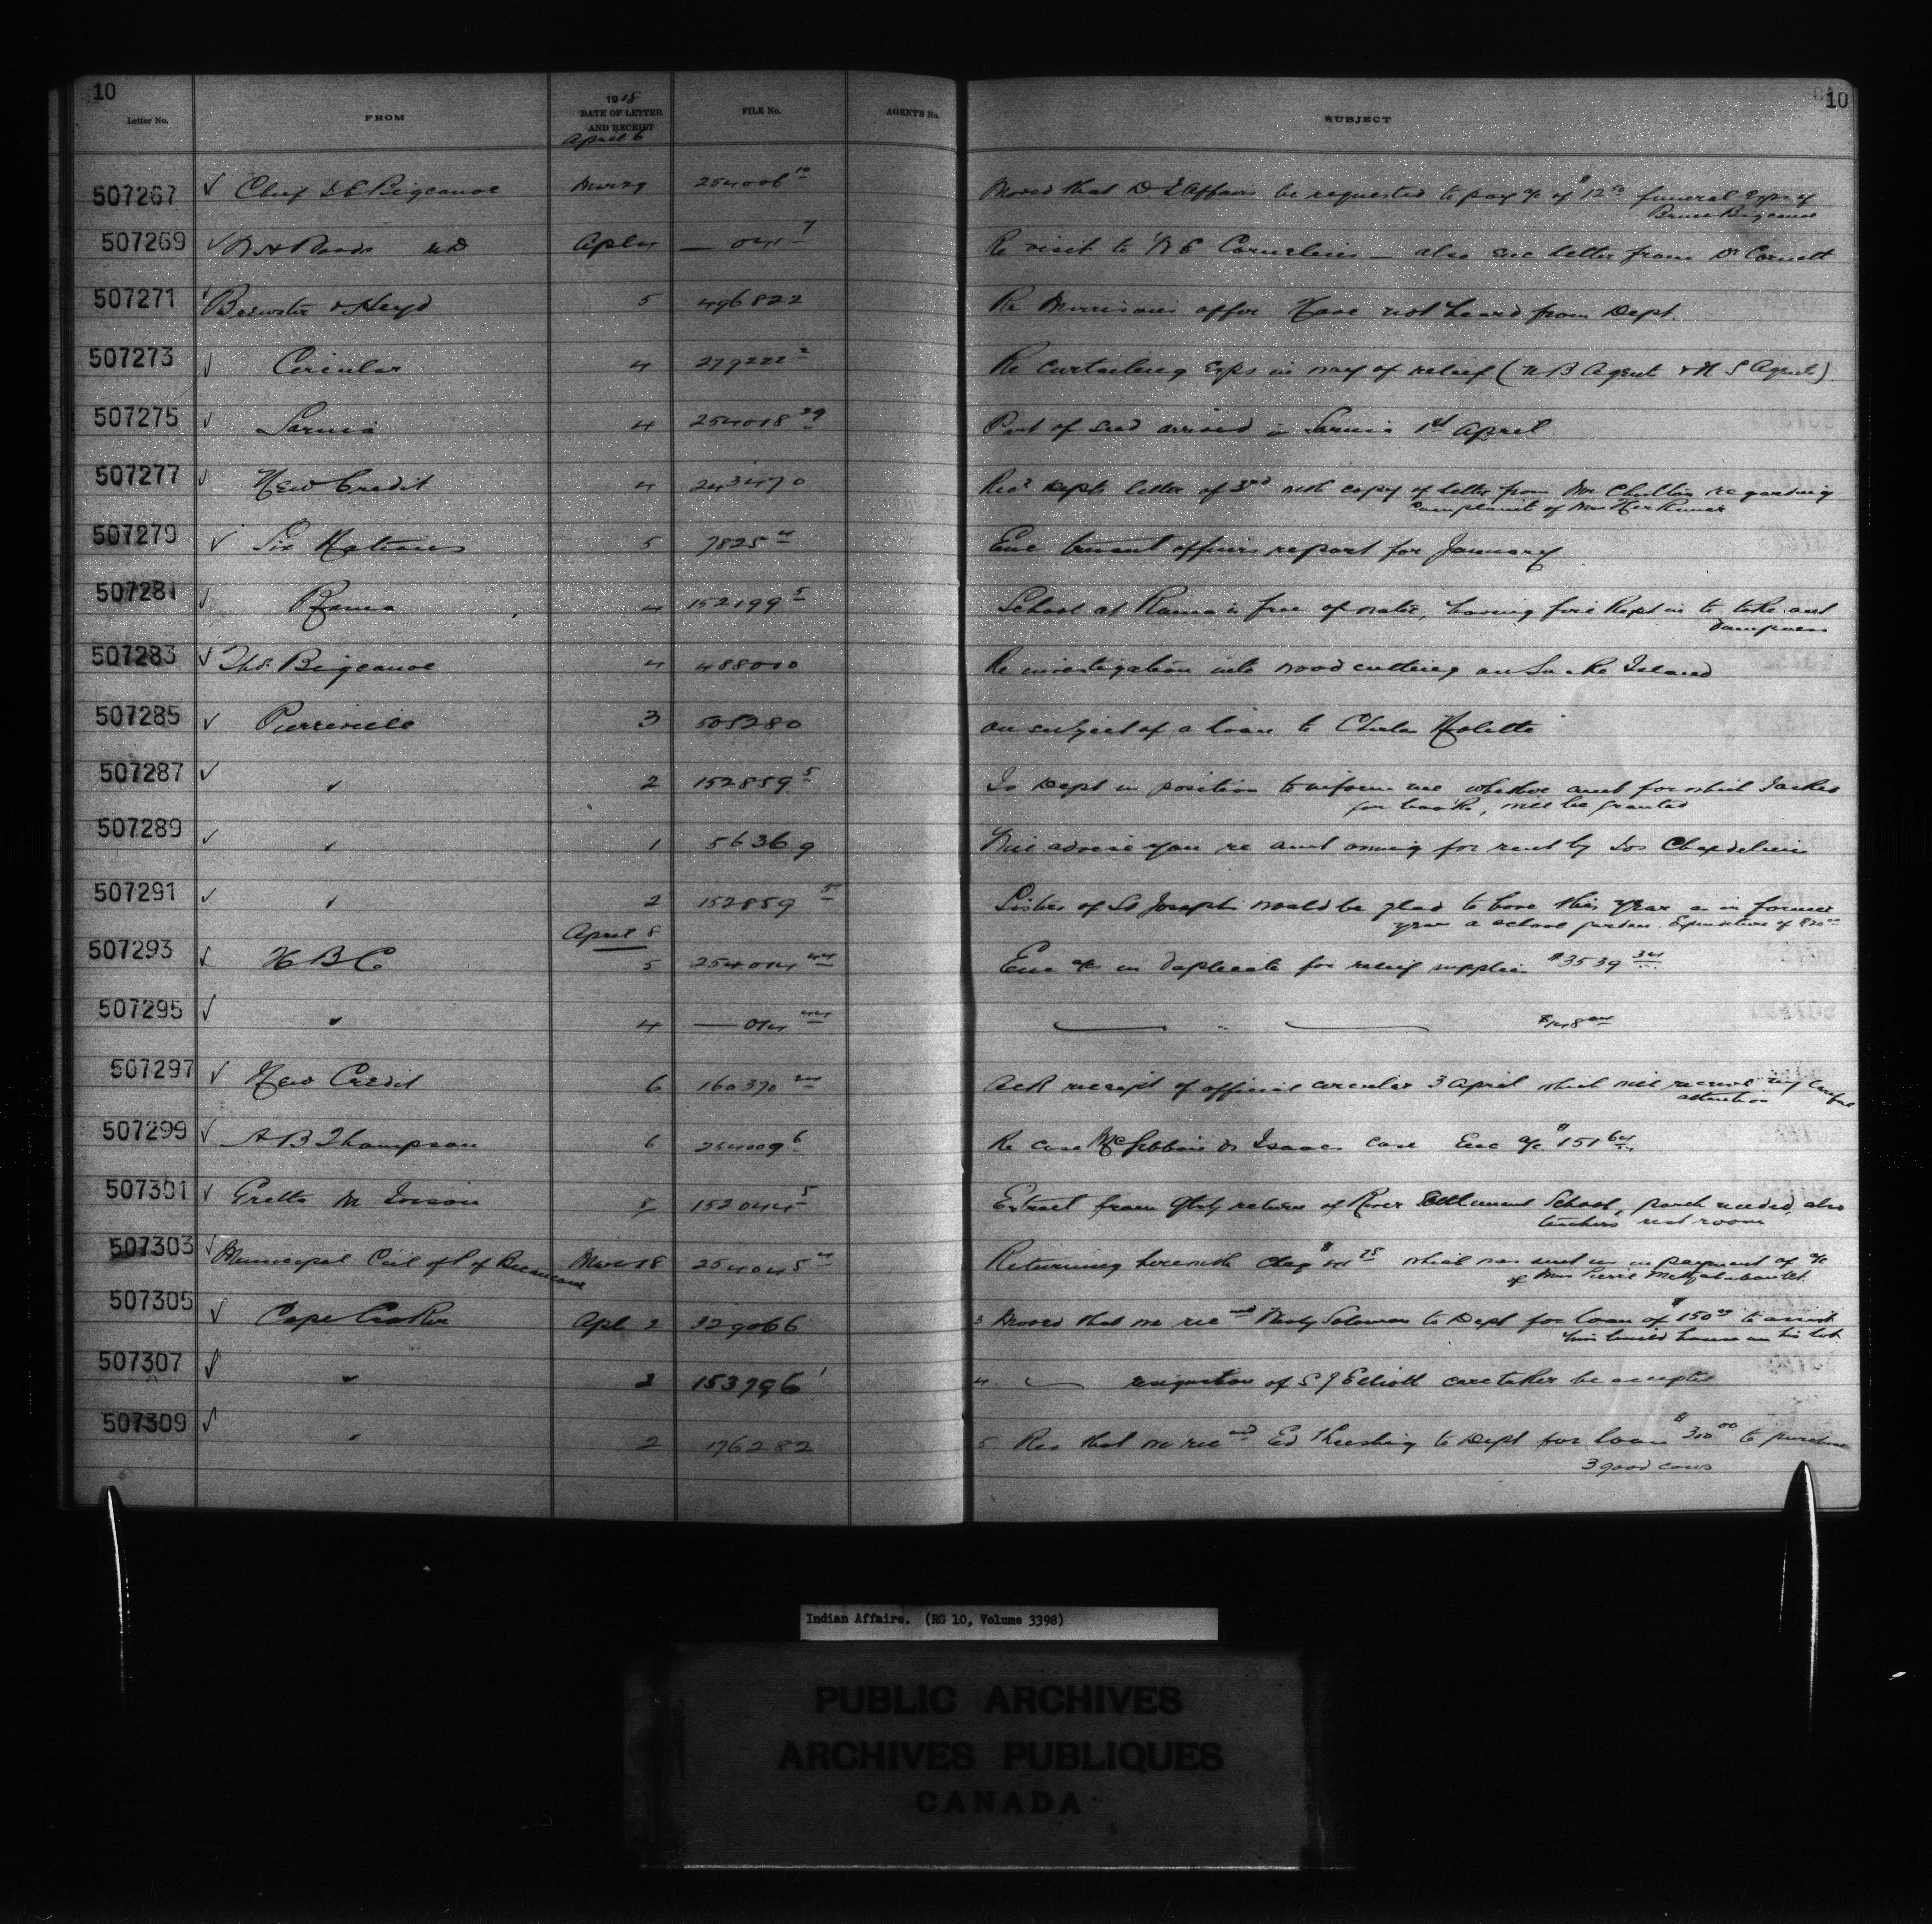 10
10
Letter No. FROM 1918 DATE OF LETTER AND RECEIPT FILE No. AGENT'S No. SUBJECT
April 6
507267 Chief Bigcanoe Mar 29 254006 10 Moved that D. I. Affairs be requested to pay a/c of $12 50 funeral Exps of
Bigcanoe
507269 Woods MD Apl 4 — 041 7 Re visit to Cornelius — also enc letter from Dr
507271 Brewster & Heyd 5 496822 Re Morrisons offer Have not heard from Dept.
507273 Circular 4 279222 2 Re curtailing Exps in way of relief (N B Agent & N S Agents)
507275 Sarnia 4 254018 29 Part of seed arrived in Sarnia 1st April
507277 New Credit 4 243470 Recd Depts letter of 3rd with copy of letter from Mr regarding
complaint of Mrs Herkimer
507279 Six Nations 5 7825 4 Enc truant officers report for January
507281 Rama 4 152199 5 School at Rama is free of water, having fire kept in to take out
dampness
507283 Thos. Bigcanoe 4 488010 Re investigation into wood cutting on Snake Island
507285 Pierreville 3 505280 on subject of a loan to Charles Nolette
507287 " 2 152859 5 Is Dept in position to inform me whether amt for which I asked
for books, will be granted
507289 " 1 56369 Will advise you re amt owing for rent by Jos Chapdelaine
507291 " 2 152859 5 Sisters of St Joseph would be glad to have this year as in former
year a school garden. Expenditure of $20 00
April 8
507293 H B C 5 254014 44 Enc a/cs in duplicate for relief supplies $3539 34
507295 " 4 — 014 44 "
507297 New Credit 6 160370 Ack receipt of official circular 3 April which will receive my careful
attention
507299 A B Thompson 6 254009 6 Re case McGibbon vs Isaac case Enc a/c $151 64
507301 Gretta M 5 152044 5 Extract from Qtrly return of River Settlement School, porch needed, also
teachers rest room
507303 Municipal of Mar 18 254045 4 Returning herewith Cheq $ 75 which was sent us in payment of a/c
of Mrs Pierre
507305 Cape Croker Apl 2 329066 3 Moved that we recmd Solomon to Dept for loan of $150 00 to assist
him build house on his lot
507307 " 2 153796 1 4 — resignation of S J Elliott caretaker be accepted
507309 " 2 176282 5 Res that we recmd Ed to Dept for loan $300 00 to purchase
3 good cows
Indian Affairs. (RG 10, Volume 3398)
PUBLIC ARCHIVES
ARCHIVES PUBLIQUES
CANADA